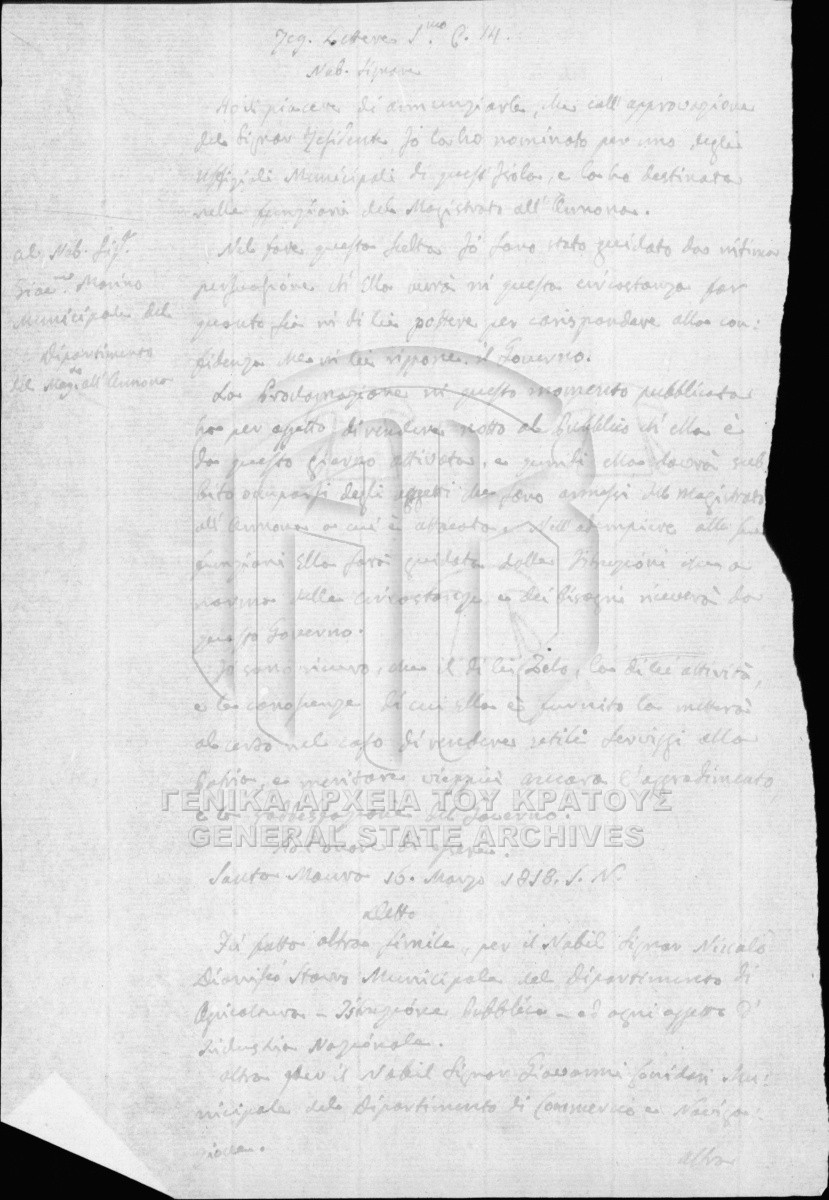 Reg. Lettere S.mo C. 14.
Nob. Signore
Ho il piacere di annunziarle, che coll' approvazione
del Signor Residente Jo la ho nominato per uno degli
Uffiziali Municipali di quest' Isola, e la ho destinata
nelle funzioni del Magistrato all' Annona.
al Nob. Sig.r
Marino
Municipale del
Dipartimento
del Mag.to all' Annona
Nel fare questa scelta Jo sono stato guidato da intima
persuasione ch' Ella averà in questa circostanza far
quanto sia in di lei potere per corrispondere alla con:
fidenza che in lei ripone il Governo.
La Proclamazione in questo momento pubblicata
ha per oggetto di rendere notto al Pubblico ch' ella è
da questo giorno attivata, e quindi ella doverà sub
bito occuparsi degli oggetti che sono annessi del Magistrato
all' Annona a cui è
funzioni Ella sarà guidata dalle Istruzioni che a
norma delle circostanze e dei bisogni riceverà da
questo Governo.
Jo sono sicuro, che il di lei Zelo, la di lei attività,
e le conoscenze di cui ella è fornito la metterà
al certo nel caso di rendere utili servizzi alla
Patria, e meritare vieppiù ancora l'aggradimento,
e la soddisfazione del Governo.
Ho l'onore di essere.
ΓΕΝΙΚΑ ΑΡΧΕΙΑ ΤΟΥ ΚΡΑΤΟΥΣ
GENERAL STATE ARCHIVES
Santa Maura 16. Marzo 1818. S. N.
Fù fatta altra simile, per il Nobil Signor Niccalò
Dionisio Stavro Municipale del Dipartimento di
Agricoltura – Istruzione Pubblica – ed ogni oggetto d'
Industria Nazionale.
Altra per il Nobil Signor Giovanni Mu:
nicipale del Dipartimento di Commercio e Naviga:
zione.
altra